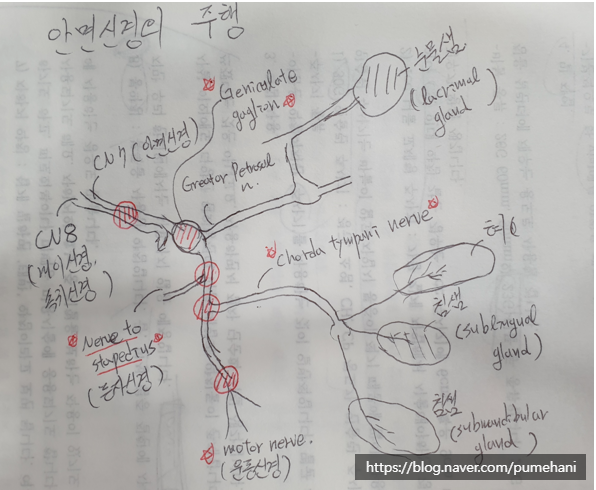 안면신경의 주행
눈물샘
(lacrimal
gland)
Geniculate
gaglion
CN7 (안면신경)
Greator Petrosal
n.
CN8
(전정신경,
와우신경)
Chorda tympani nerve
혀
침샘
(sublingual
gland)
Nerve to
stapedius
(등자신경)
침샘
(submandibular
gland)
motor nerve.
(운동신경)
https://blog.naver.com/pumehani